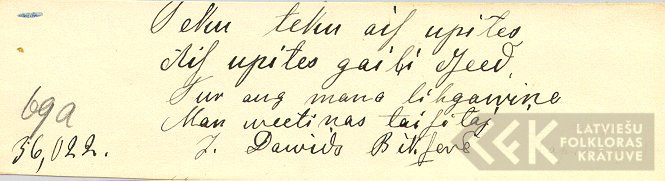 Teku teku aiſ upites
Aiſ upites gaiļi dſeed,
Tur aug mana lihgawiņe
Man weetiņas taiſitaj
69a
56,022.
J. Dawids Bikſerē
LATVIEŠU
FOLKLORAS
KRĀTUVE